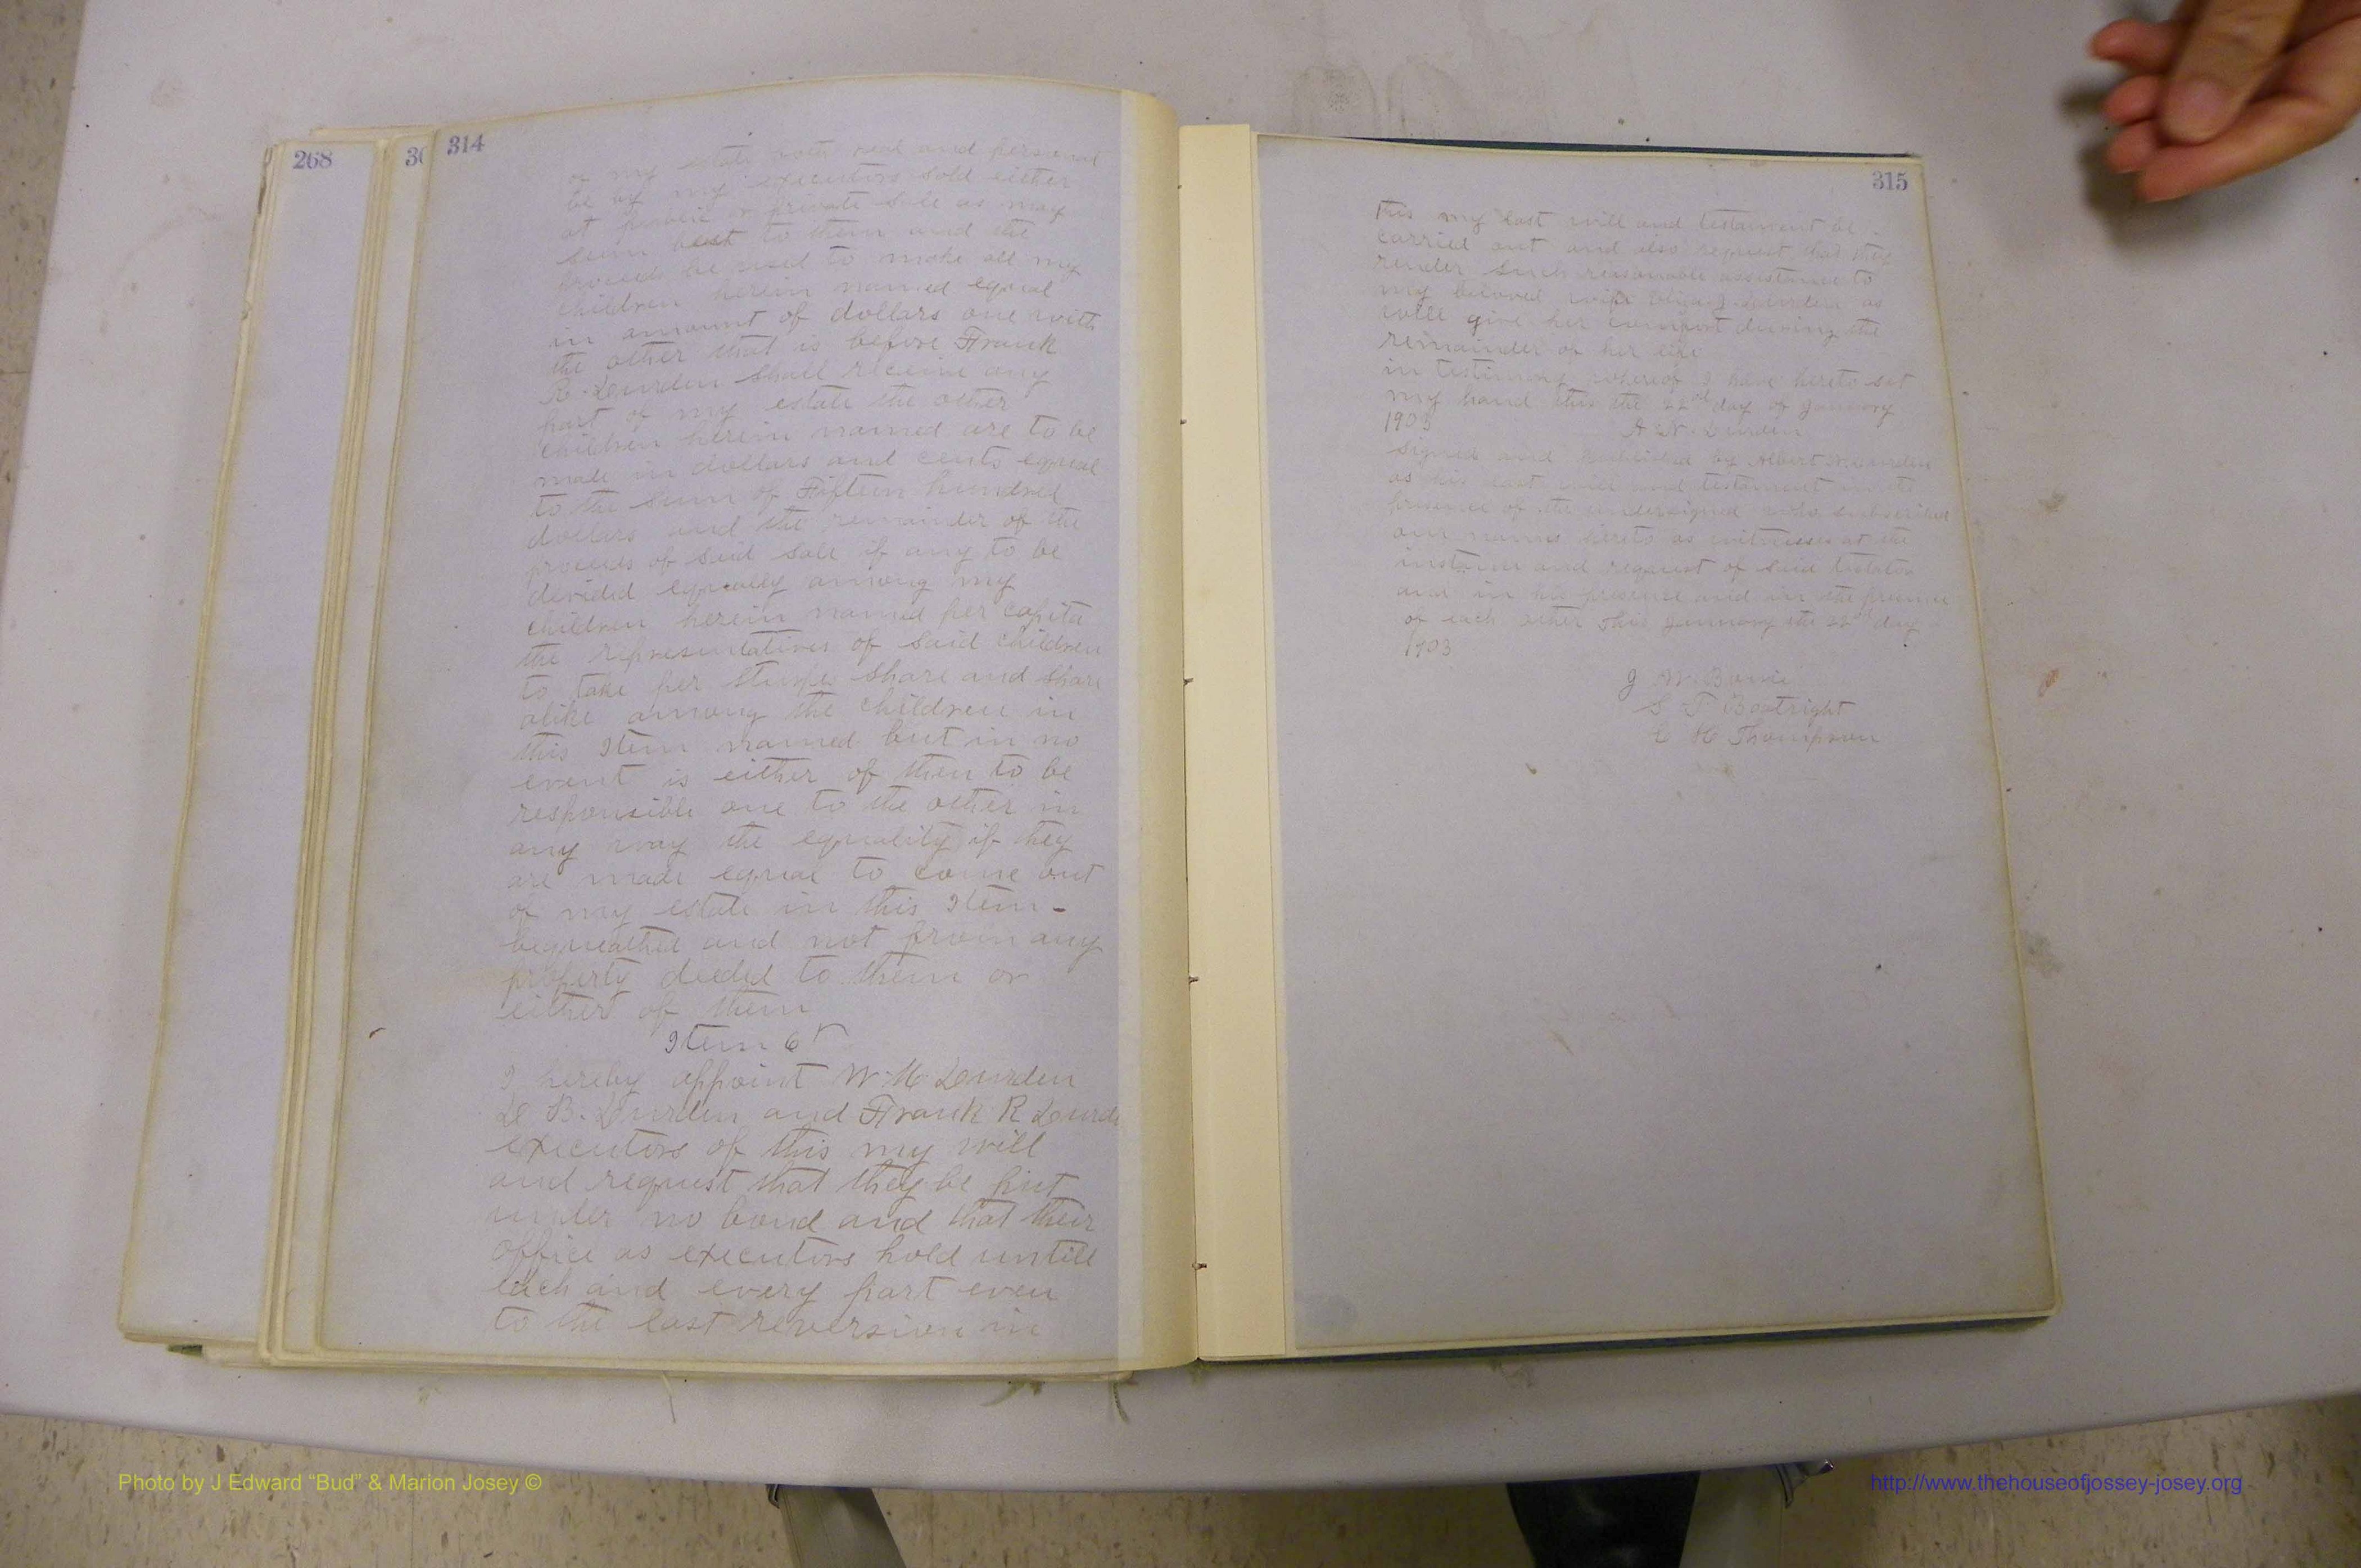 268
30
314
of my estate both real and personal
be by my executors sold either
at public or private sale as may
seem best to them and the
proceeds be used to make all my
children herein named equal
in amount of dollars one with
the other that is before Frank
R. Durden shall receive any
part of my estate the other
children herein named are to be
made in dollars and cents equal
to the sum of Fifteen hundred
dollars and the remainder of the
proceeds of said sale if any to be
divided equally among my
children herein named per capita
the representatives of said children
to take per stirpes share and share
alike among the children in
this Item named but in no
event is either of them to be
responsible one to the other in
any way the equality if they
are made equal to come out
of my estate in this Item-
bequeathed and not from any
property deeded to them or
either of them
Item 6
I hereby appoint W H Durden
B. Durden and Frank R Durden
executors of this my will
and request that they be put
under no bond and that their
office as executors hold untill
each and every part even
to the last reversion in
315
this my last will and testament be
carried out and also request that they
render such reasonable assistance to
my beloved wife Eliza J. Durden as
will give her comfort during the
remainder of her life
in testimony whereof I have hereto set
my hand this the 22nd day of January
1903
A N. Durden
Signed and published by Albert N. Durden
as his last will and testament in the
presence of the undersigned who subscribed
our names hereto as witnesses at the
instance and request of said testator
and in his presence and in the presence
of each other this January the 22nd day
1903
J W.
S T Boatright
C H Thompson
Photo by J Edward “Bud” & Marion Josey ©
http://www.thehouseofjossey-josey.org